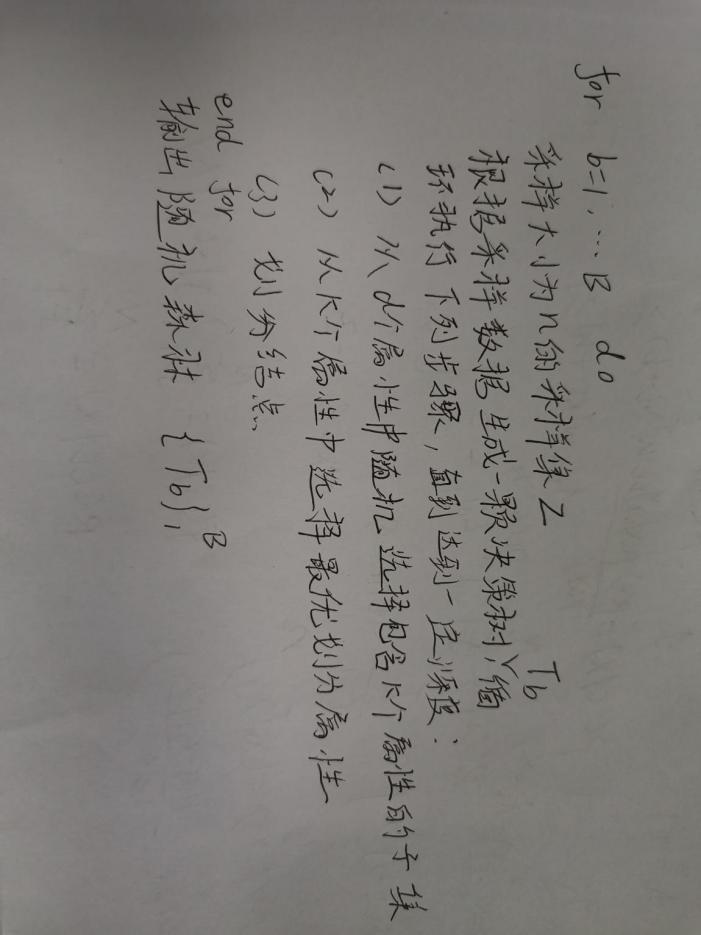 for b=1,…B do
采样大小为n的采样集Z
根据采样数据生成一颗决策树Tb,循
环执行下列步骤,直到达到一定深度:
(1) 从d个属性中随机选择包含K个属性的子集
(2) 从K个属性中选择最优划分属性
(3) 划分结点
end for
输出随机森林 {Tb}₁ᴮ